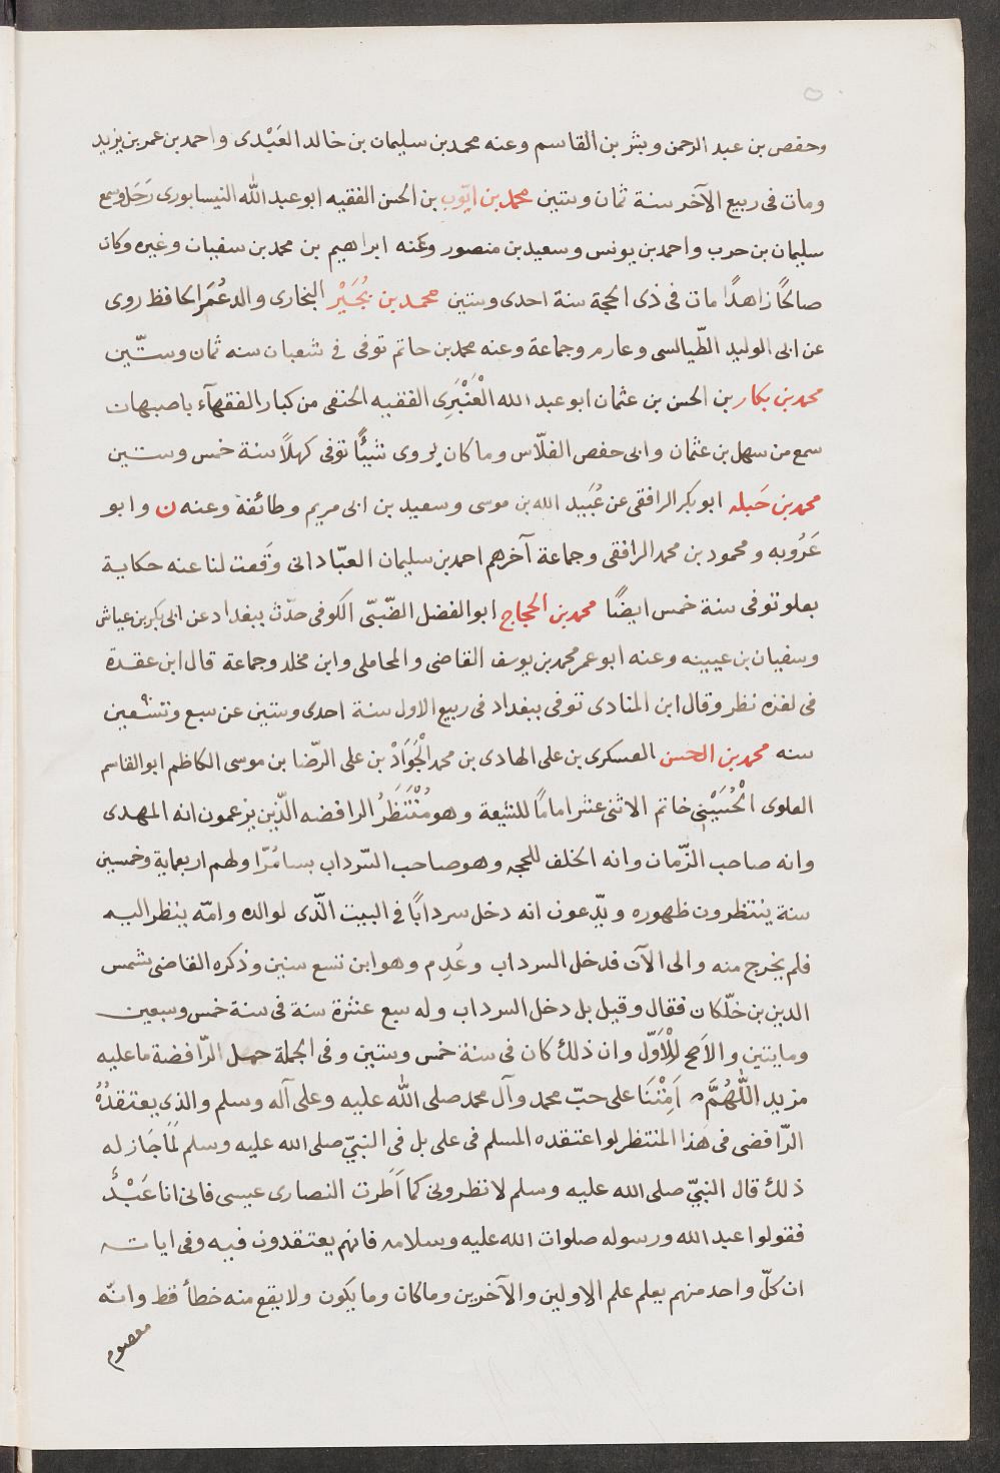 وحفص بن عبد الرحمن وبشر بن القاسم وعنه محمد بن سليمان بن خالد العَبْدى واحمد بن عمر بن يزيد
ومات فى ربيع الآخر سنة ثمان وستين محمد بن ايّوب بن الحسن الفقيه ابو عبد الله النيسابورى رَحَل وسمع
سليمان بن حرب واحمد بن يونس وسعيد بن منصور وعَنه ابراهيم بن محمد بن سفيان وغيره وكان
صالحًا زاهدًا مات فى ذى الحجة سنة احدى وستين محمد بن بُجَيْر البخارى والد عُمَر الحافظ روى
عن ابى الوليد الطّيالسى وعارم وجماعة وعنه محمد بن حاتم توفى فى شعبان سنه ثمان وستّين
محمد بن بكار بن الحسن بن عثمان ابو عبد الله الْعَنْبَرِى الفقيه الحنفى من كبار الفقهآء باصبهان
سمع من سهل بن عثمان وابى حفص الفلّاس وما كان يروى شيئًا توفى كهلًا سنة خمس وستين
محمد بن جَبله ابو بكر الرافقى عن عُبَيد الله بن موسى وسعيد بن ابى مريم وطائفة وعنه ن وابو
عَرُوبه ومحمود بن محمد الرافقى وجماعة آخرهم احمد بن سليمان العبّادانى وَقعت لنا عنه حكاية
بعلو توفى سنة خمس ايضًا محمد بن الحجاج ابو الفضل الضّبّى الكوفى حدّث ببغداد عن ابى بكر بن عياش
وسفيان بن عيينه وعنه ابو عمر محمد بن يوسف القاضى والمحاملى وابن مخلد وجماعة قال ابن عقدة
فى لفزه نظر وقال ابن المنادى توفى ببغداد فى ربيع الاول سنة احدى وستين عن سبع وتسْعين
سنه محمد بن الحسن العسكرى بن على الهادى بن محمد الْجَوَادْ بن على الرّضا بن موسى الكاظم ابو القاسم
العلوى الْحُسَيْنِى خاتم الاثنى عشر امامًا للشيعة وهو مُنْتَظَرُ الرافضه الّذين يزعمون انه المهدى
وانه صاحب الزّمان وانه الخلف للحجه وهو صاحب السّرداب بسامُرّا ولهم اربعماية وخمسين
سنة ينتظرون ظهوره ويدّعون انه دخل سردابًا فى البيت الّذى لوالده وامّه ينظر اليه
فلم يخرج منه والى الآن فدخل السرداب وعُدِم وهو ابن تسع سنين وذكره القاضى شمس
الدين بن خلّكان فقال وقيل بل دخل السرداب وله سبع عشرة سنة فى سنة خمس وسبعين
ومايتين والاَصح للْأَوّل وان ذلك كان فى سنة خمس وستين وفى الجملة جهل الرّافضة ما عليه
مزيد اللّهُمَّ اَمِتْنَا على حبّ محمد وآل محمد صلى الله عليه وعلى آله وسلم والذى يعتقدُهُ
الرّافضى فى هَذا المنتظر لو اعتقده المسلم فى على بل فى النبىّ صلى الله عليه وسلم لَمَا جَاز له
ذلك قال النبىّ صلى الله عليه وسلم لا نظرونى كما اَطرت النصارى عيسى فانى انا عَبْدٌ
فقولوا عبد الله ورسوله صلوات الله عليه وسلامه فانهم يعتقدون فيه وفى ابائه
ان كلّ واحد منهم يعلم علم الاولين والآخرين وما كان وما يكون ولا يقع منه خطأ قط وانّه
معصوم